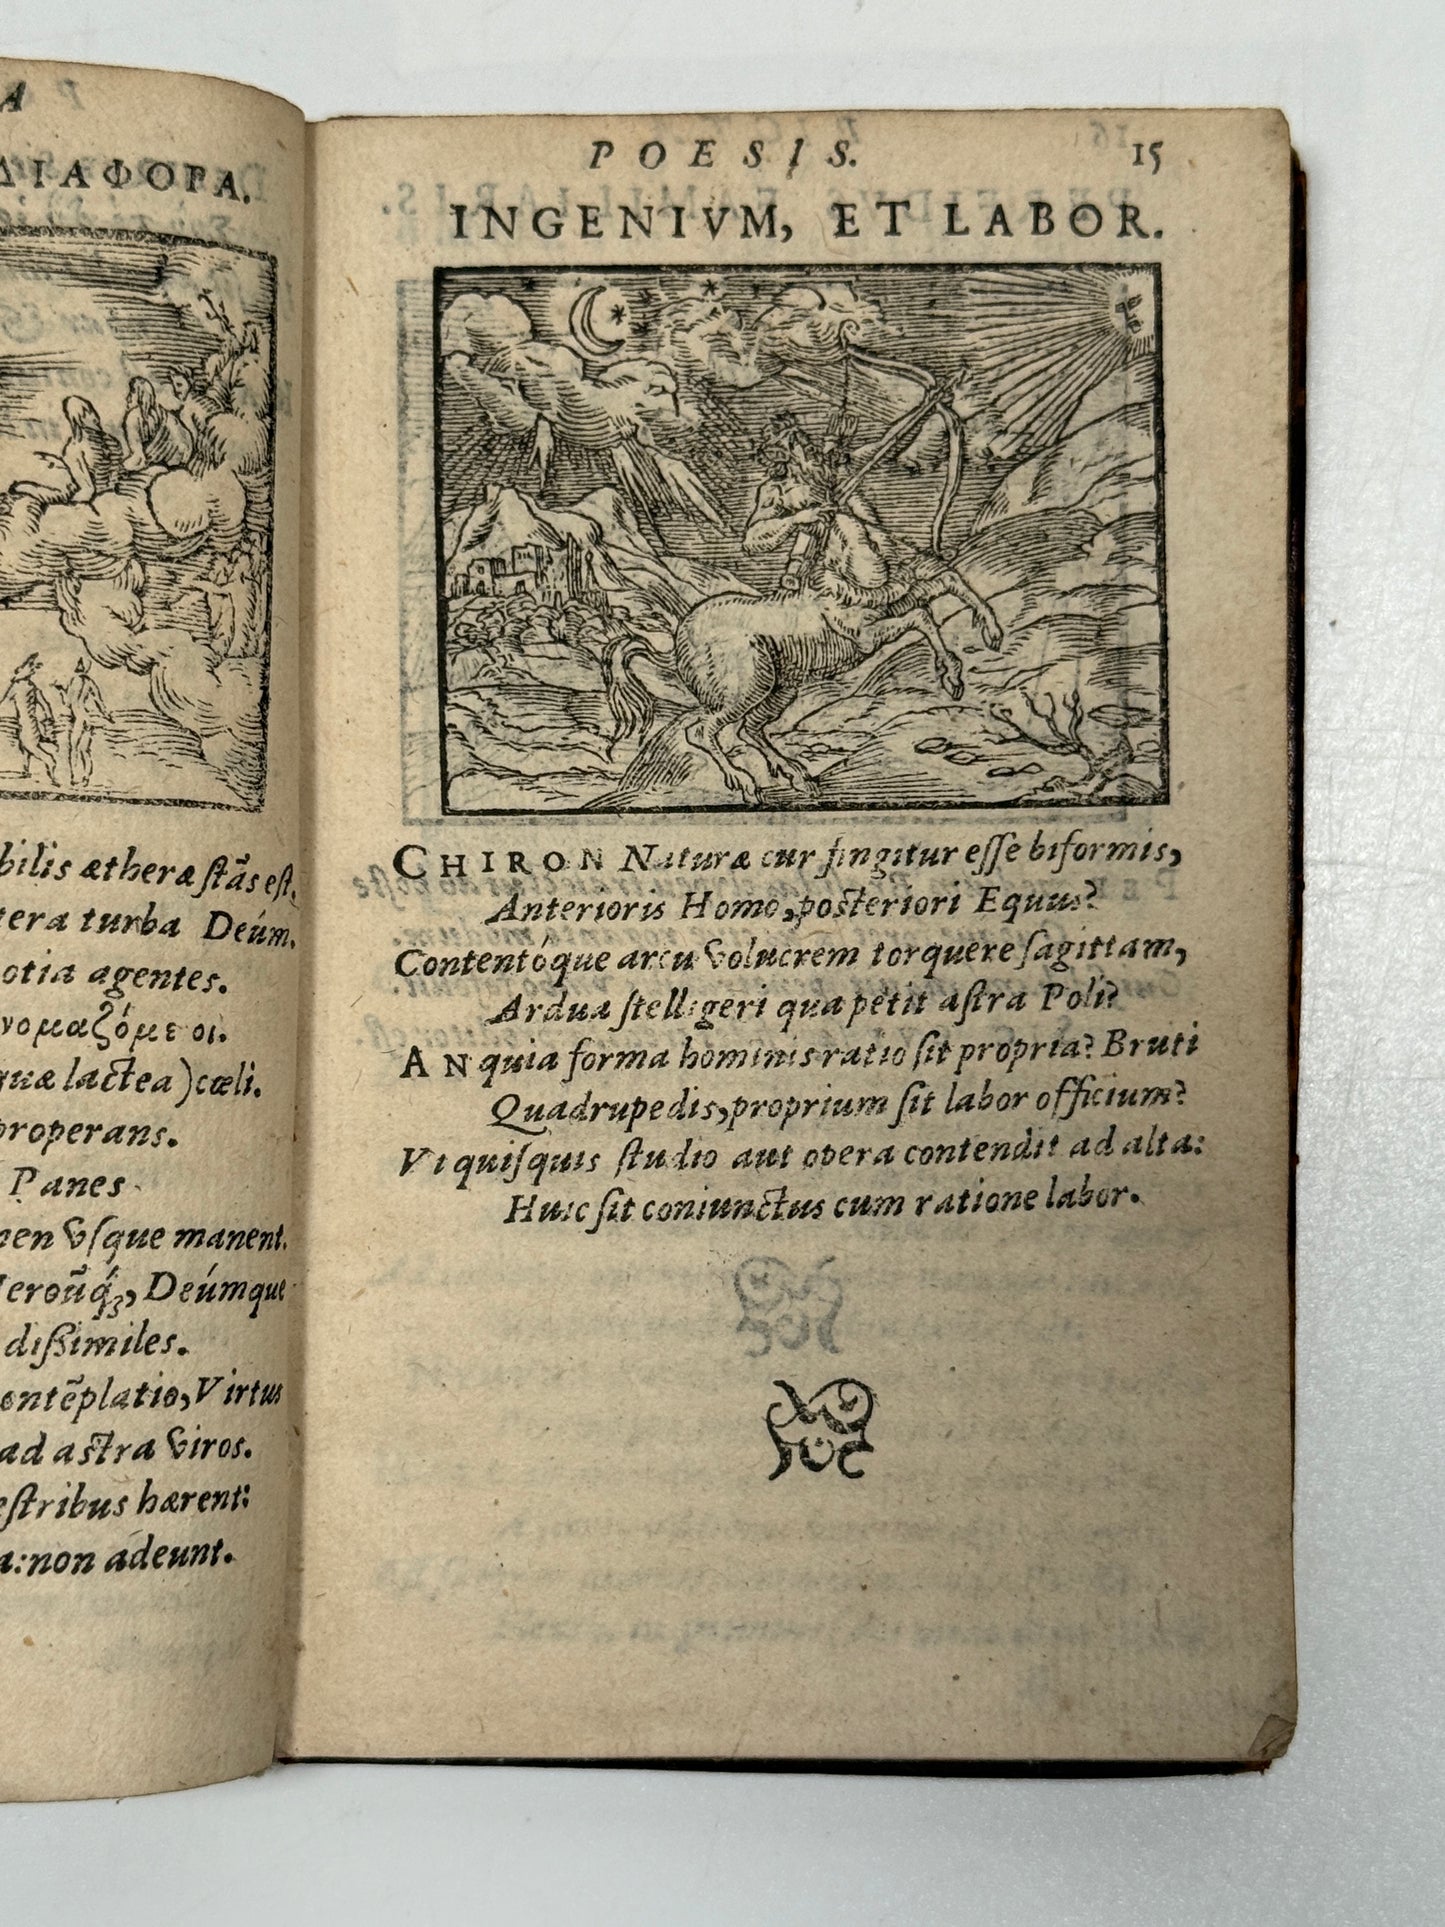 A
ΔΙΑΦΟΡΑ.
bilis æthereæ stãs est,
tera turba Deúm.
otia agentes.
νομαζόμενοι.
quæ lactea) cœli.
properans.
Panes
men vsque manent.
Heroũq́ꝫ, Deúmque
dißimiles.
ontẽplatio, Virtus
ad astra viros.
estribus hærent:
a: non adeunt.
POESIS. 15
INGENIVM, ET LABOR.
CHIRON Naturæ cur fingitur esse biformis,
Anterioris Homo, posteriori Equus?
Contentóque arcu volucrem torquere sagittam,
Ardua stelligeri qua petit astra Poli?
AN quia forma hominis ratio sit propria? Bruti
Quadrupedis, proprium sit labor officium?
Vt quisquis studio aut opera contendit ad alta:
Huic sit coniunctus cum ratione labor.